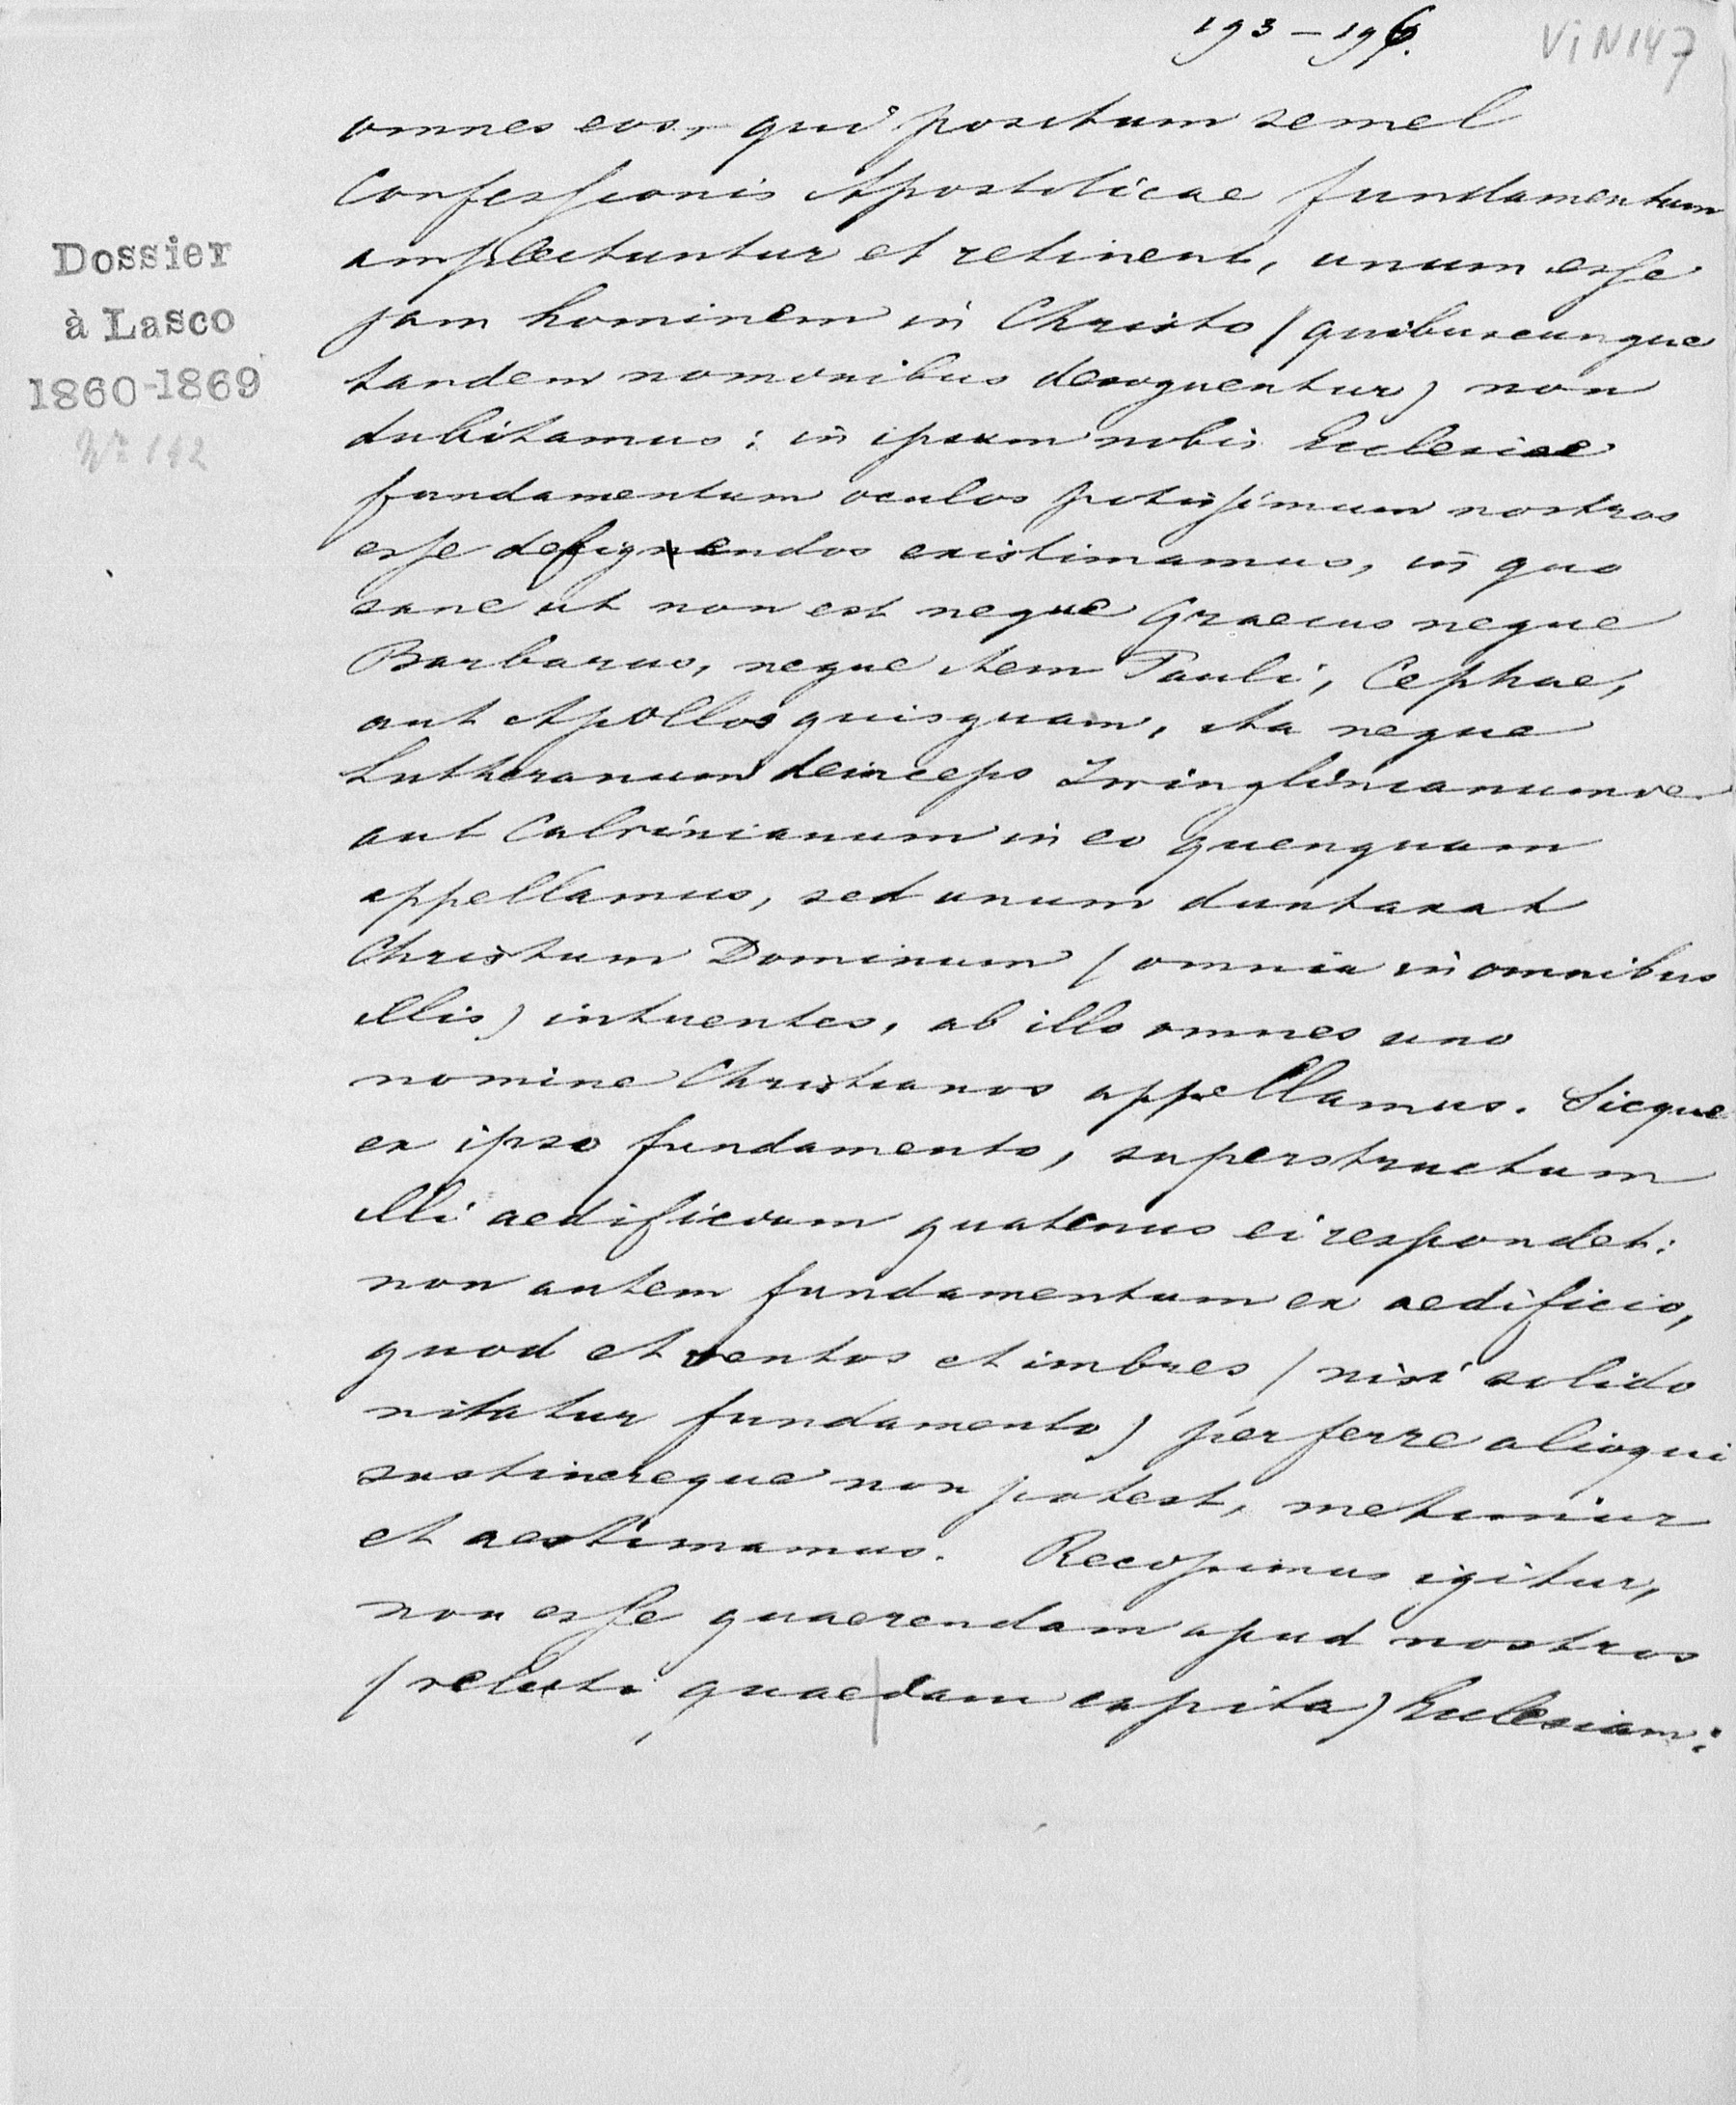 193 – 196.
ViN147
Dossier
à Lasco
1860-1869
Nº 112
omnes eos, qui positum semel
Confessionis Apostolicae fundamentum
amplectuntur et retinent, unum esse
jam hominem in Christo (quibuscunque
tandem nomonibus denoguentur) non
dubitamus: in ipsum nobis Ecclesiae
fundamentum oculos potissimum nostros
esse defigendos existimamus, in quo
sane ut non est neque Graecus neque
Barbarus, neque item Pauli, Cephae,
aut Apollos quisquam, ita neque
Lutheranum deinceps Zwinglinianumve
aut Calvinianum in eo quenquam
appellamus, sed unum duntaxat
Christum Dominum (omnia in omnibus
illis) intuentes, ab illo omnes uno
nomine Christianos appellamus. Sicque
ex ipso fundamento, superstructum
illi aedificium quatenus ei respondet:
non autem fundamentum ex aedificio,
quod et ventos et imbres (nisi solido
nitatur fundamento) perferre alioqui
sustinereque non potest, metimur
et aestimamus. Recepimus igitur,
non esse quaerendam apud nostros
(veluti quaedam capita) Ecclesiam: